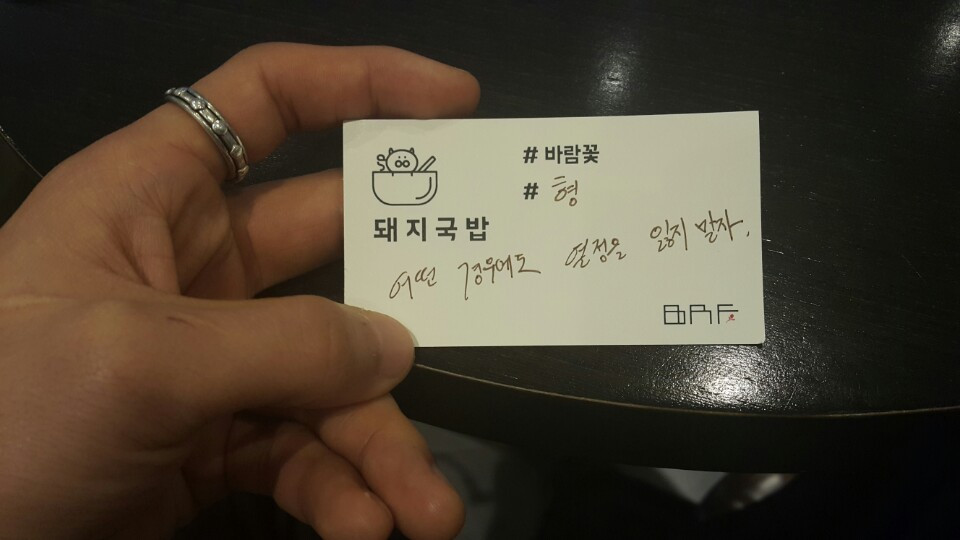 # 바람꽃
# 형
돼지국밥
어떤 경우에도 열정을 잃지 말자.
BRF